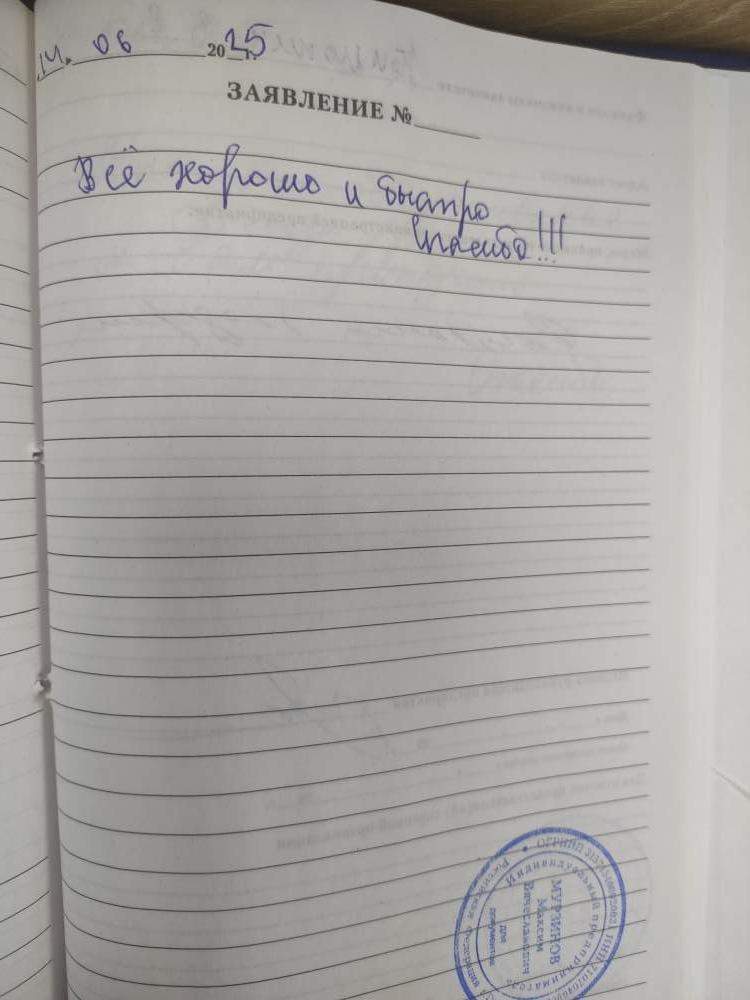 14. 06 2015 г.
ЗАЯВЛЕНИЕ №
Всё хорошо и быстро
спасибо!!!
Индивидуальный предприниматель
МУРЗИНОВ
Максим
Вячеславович
для
документов
Российская Федерация